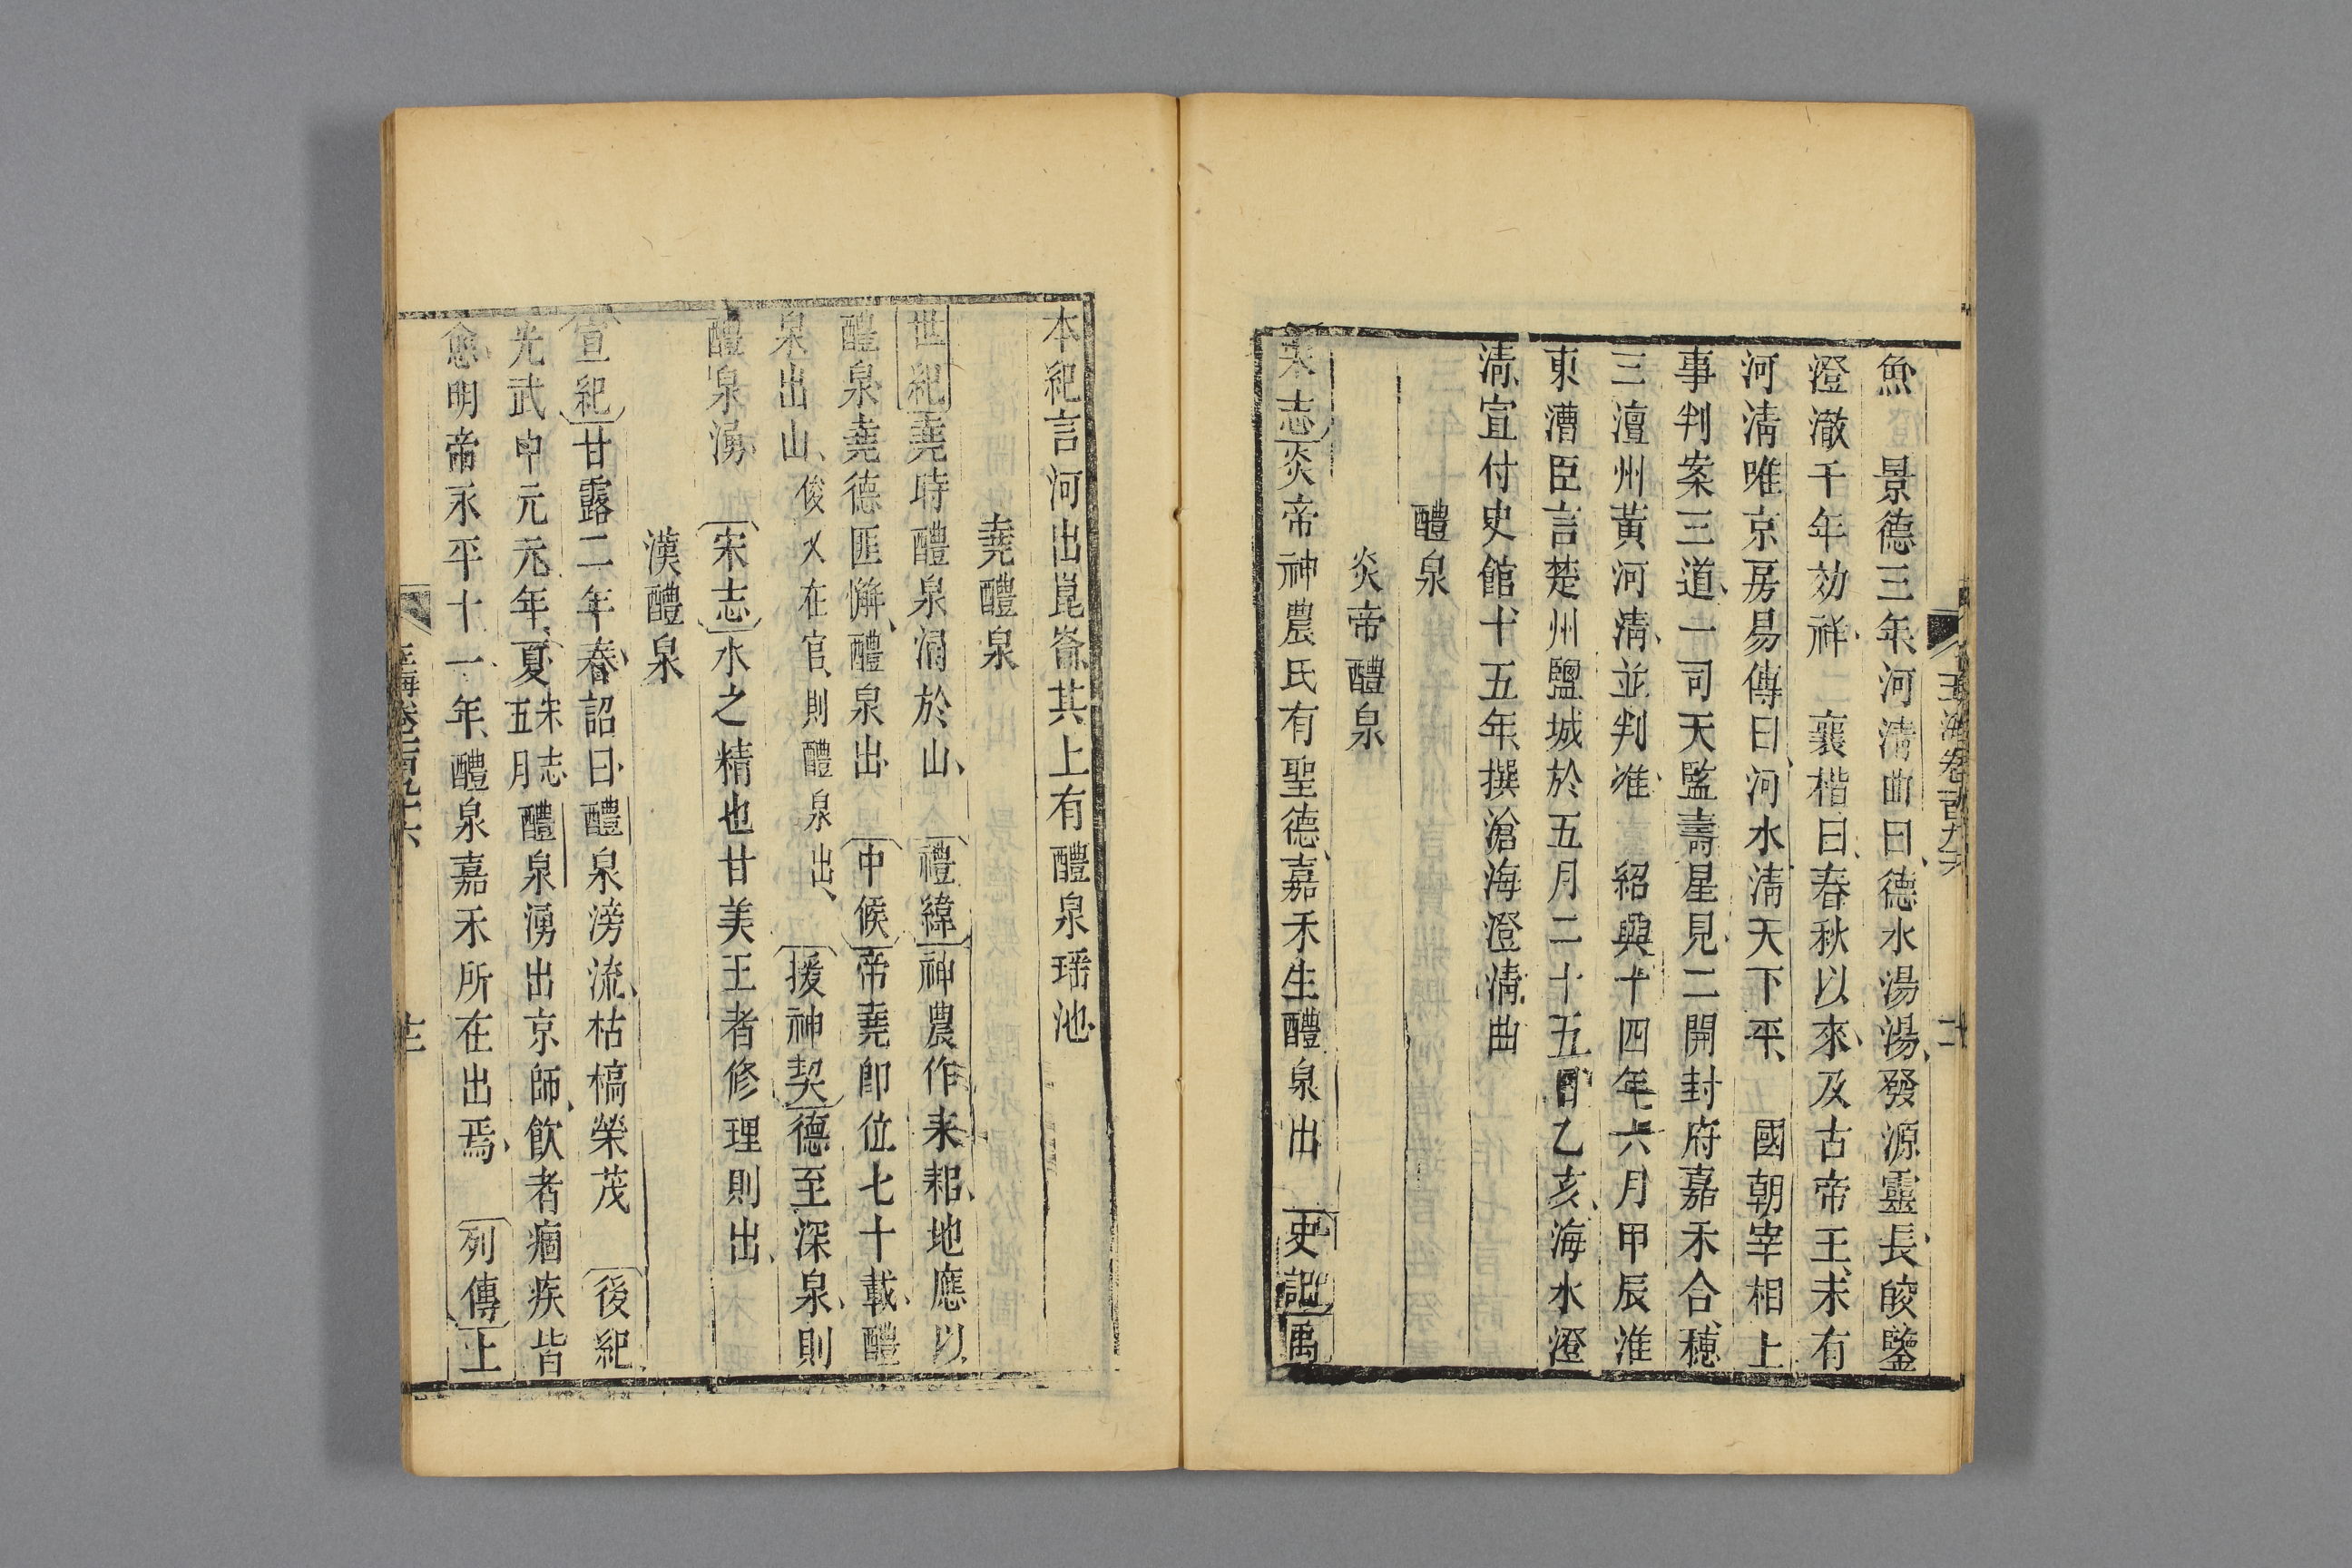 魚　景德三年河清曲曰德水湯湯發源靈長皎鑒
澄澈千年效祥　襄楷曰春秋以來及古帝王未有
河清唯京房易傳曰河水清天下平　國朝宰相上
事判案三道一司天監壽星見二開封府嘉禾合穗
三澶州黃河清並判准　紹興十四年六月甲辰淮
東漕臣言楚州鹽城於五月二十五日乙亥海水澄
清宣付史館十五年撰滄海澄清曲
醴泉
炎帝醴泉
宋志炎帝神農氏有聖德嘉禾生醴泉出　史記禹
玉海卷一百九十六　二十
本紀言河出崑崙其上有醴泉瑶池
堯醴泉
世紀堯時醴泉涌於山　禮緯神農作耒耜地應以
醴泉堯德匪懈醴泉出　中候帝堯卽位七十載醴
泉出山俊乂在官則醴泉出　援神契德至深泉則
醴泉湧　宋志水之精也甘美王者修理則出
漢醴泉
宣紀甘露二年春詔曰醴泉滂流枯槁榮茂　後紀
光武中元元年夏宋志五月醴泉湧出京師飲者痼疾皆
愈明帝永平十一年醴泉嘉禾所在出焉　列傳上
玉海卷一百九十六